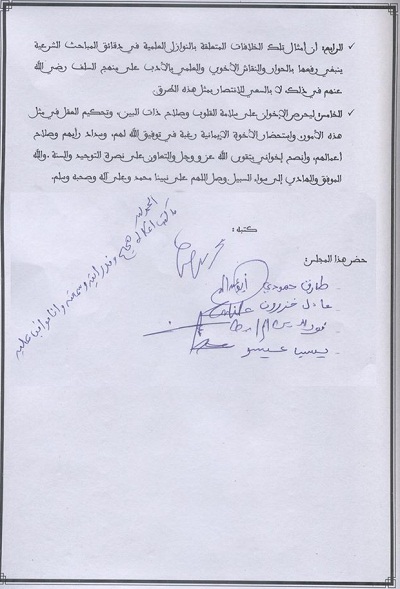 ✓ الرابع: أن أمثال تلك الخلافات المتعلقة بالنوازل العلمية في دقائق المباحث الشرعية
ينبغي رفعها بالحوار والنقاش الأخوي والعلمي بالأدب على منهج السلف رضي الله
عنهم في ذلك لا بالسعي للانتصار بمثل هذه الطرق.
✓ الخامس: ليحرص الإخوان على سلامة القلوب وصلاح ذات البين، وتحكيم العقل في مثل
هذه الأمور، واستحضار الأخوة الإيمانية رغبة في توفيق الله لهم، وسداد رأيهم وصلاح
أعمالهم، وأنصح إخواني بتقوى الله عز وجل والتعاون على نصرة التوحيد والسنة، والله
الموفق والهادي إلى سواء السبيل وصل اللهم على نبينا محمد وعلى آله وصحبه وسلم.
كتبه:
الحمد لله
ما كتب أعلاه صحيح وقد رأيته وسمعته وأنا موافق عليه
حضر هذا المجلس:
- طارق حمودي
- عادل خزرون
- نور الدين
- يسيا عيسو